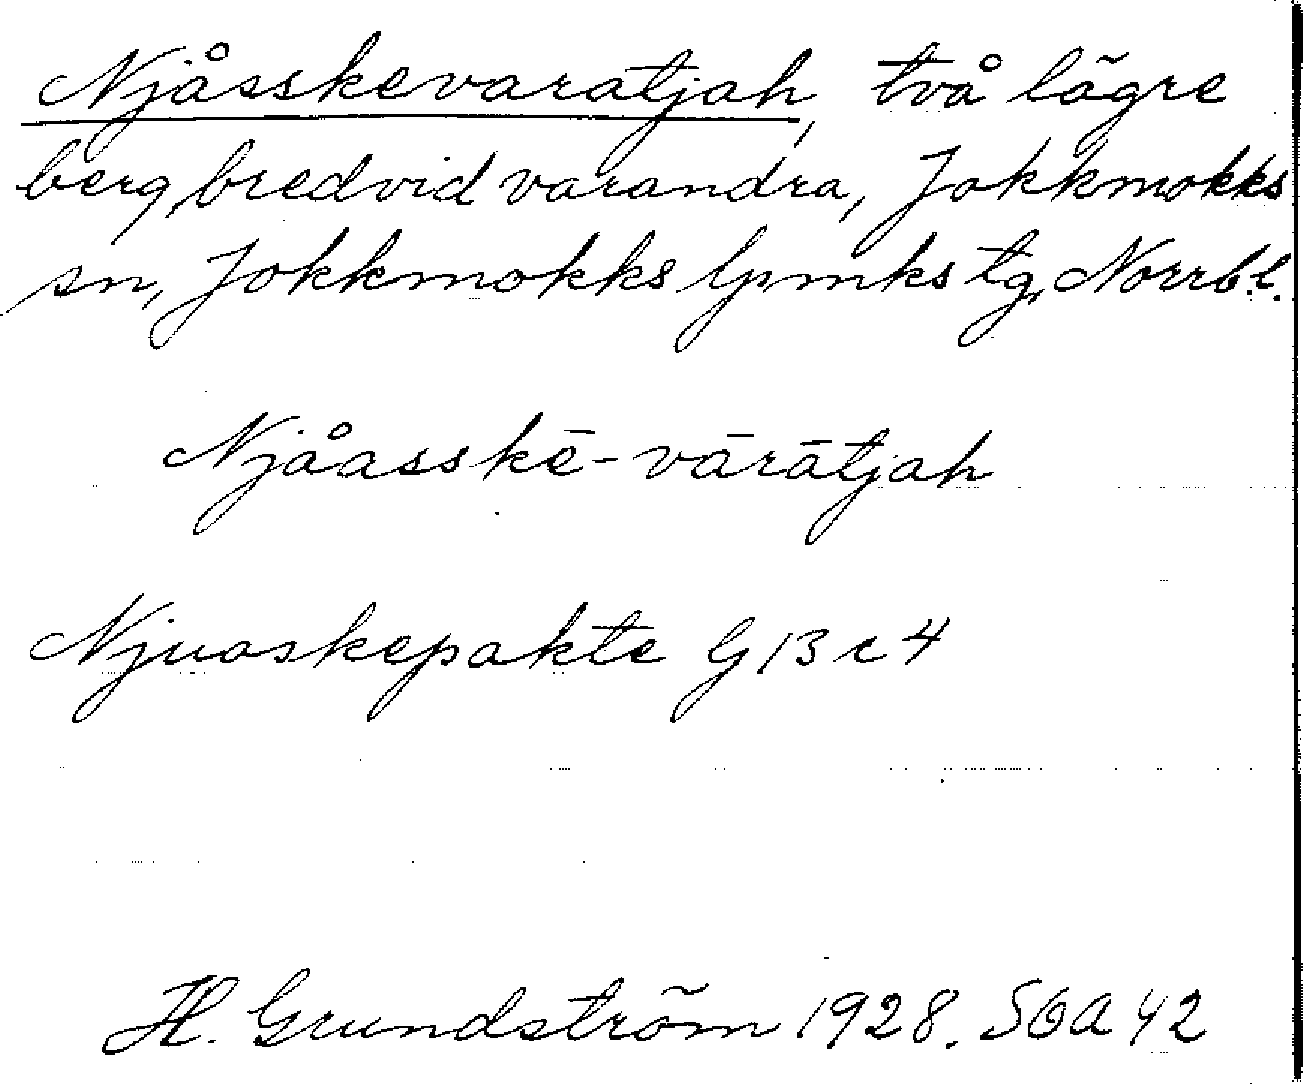 Njåsskevaratjah, två lägre
berg bredvid varandra, Jokkmokks
sn, Jokkmokks lpmks tg, Norrb.l.
Njåasskē-vārātjah
Njuoskepakte G 13 c 4
H. Grundström 1928. SOA 42